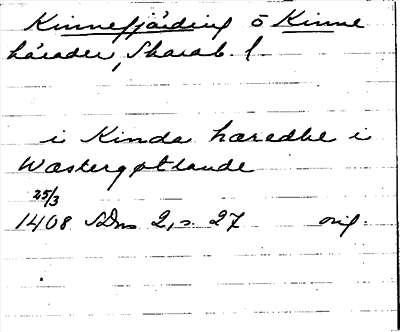 Kinnefjärding ö Kinne
härader, Skarab. l.
i Kinda hæredhe i
Wæstergøtlande
25/3
1408 SDns 2, s. 27 orig.